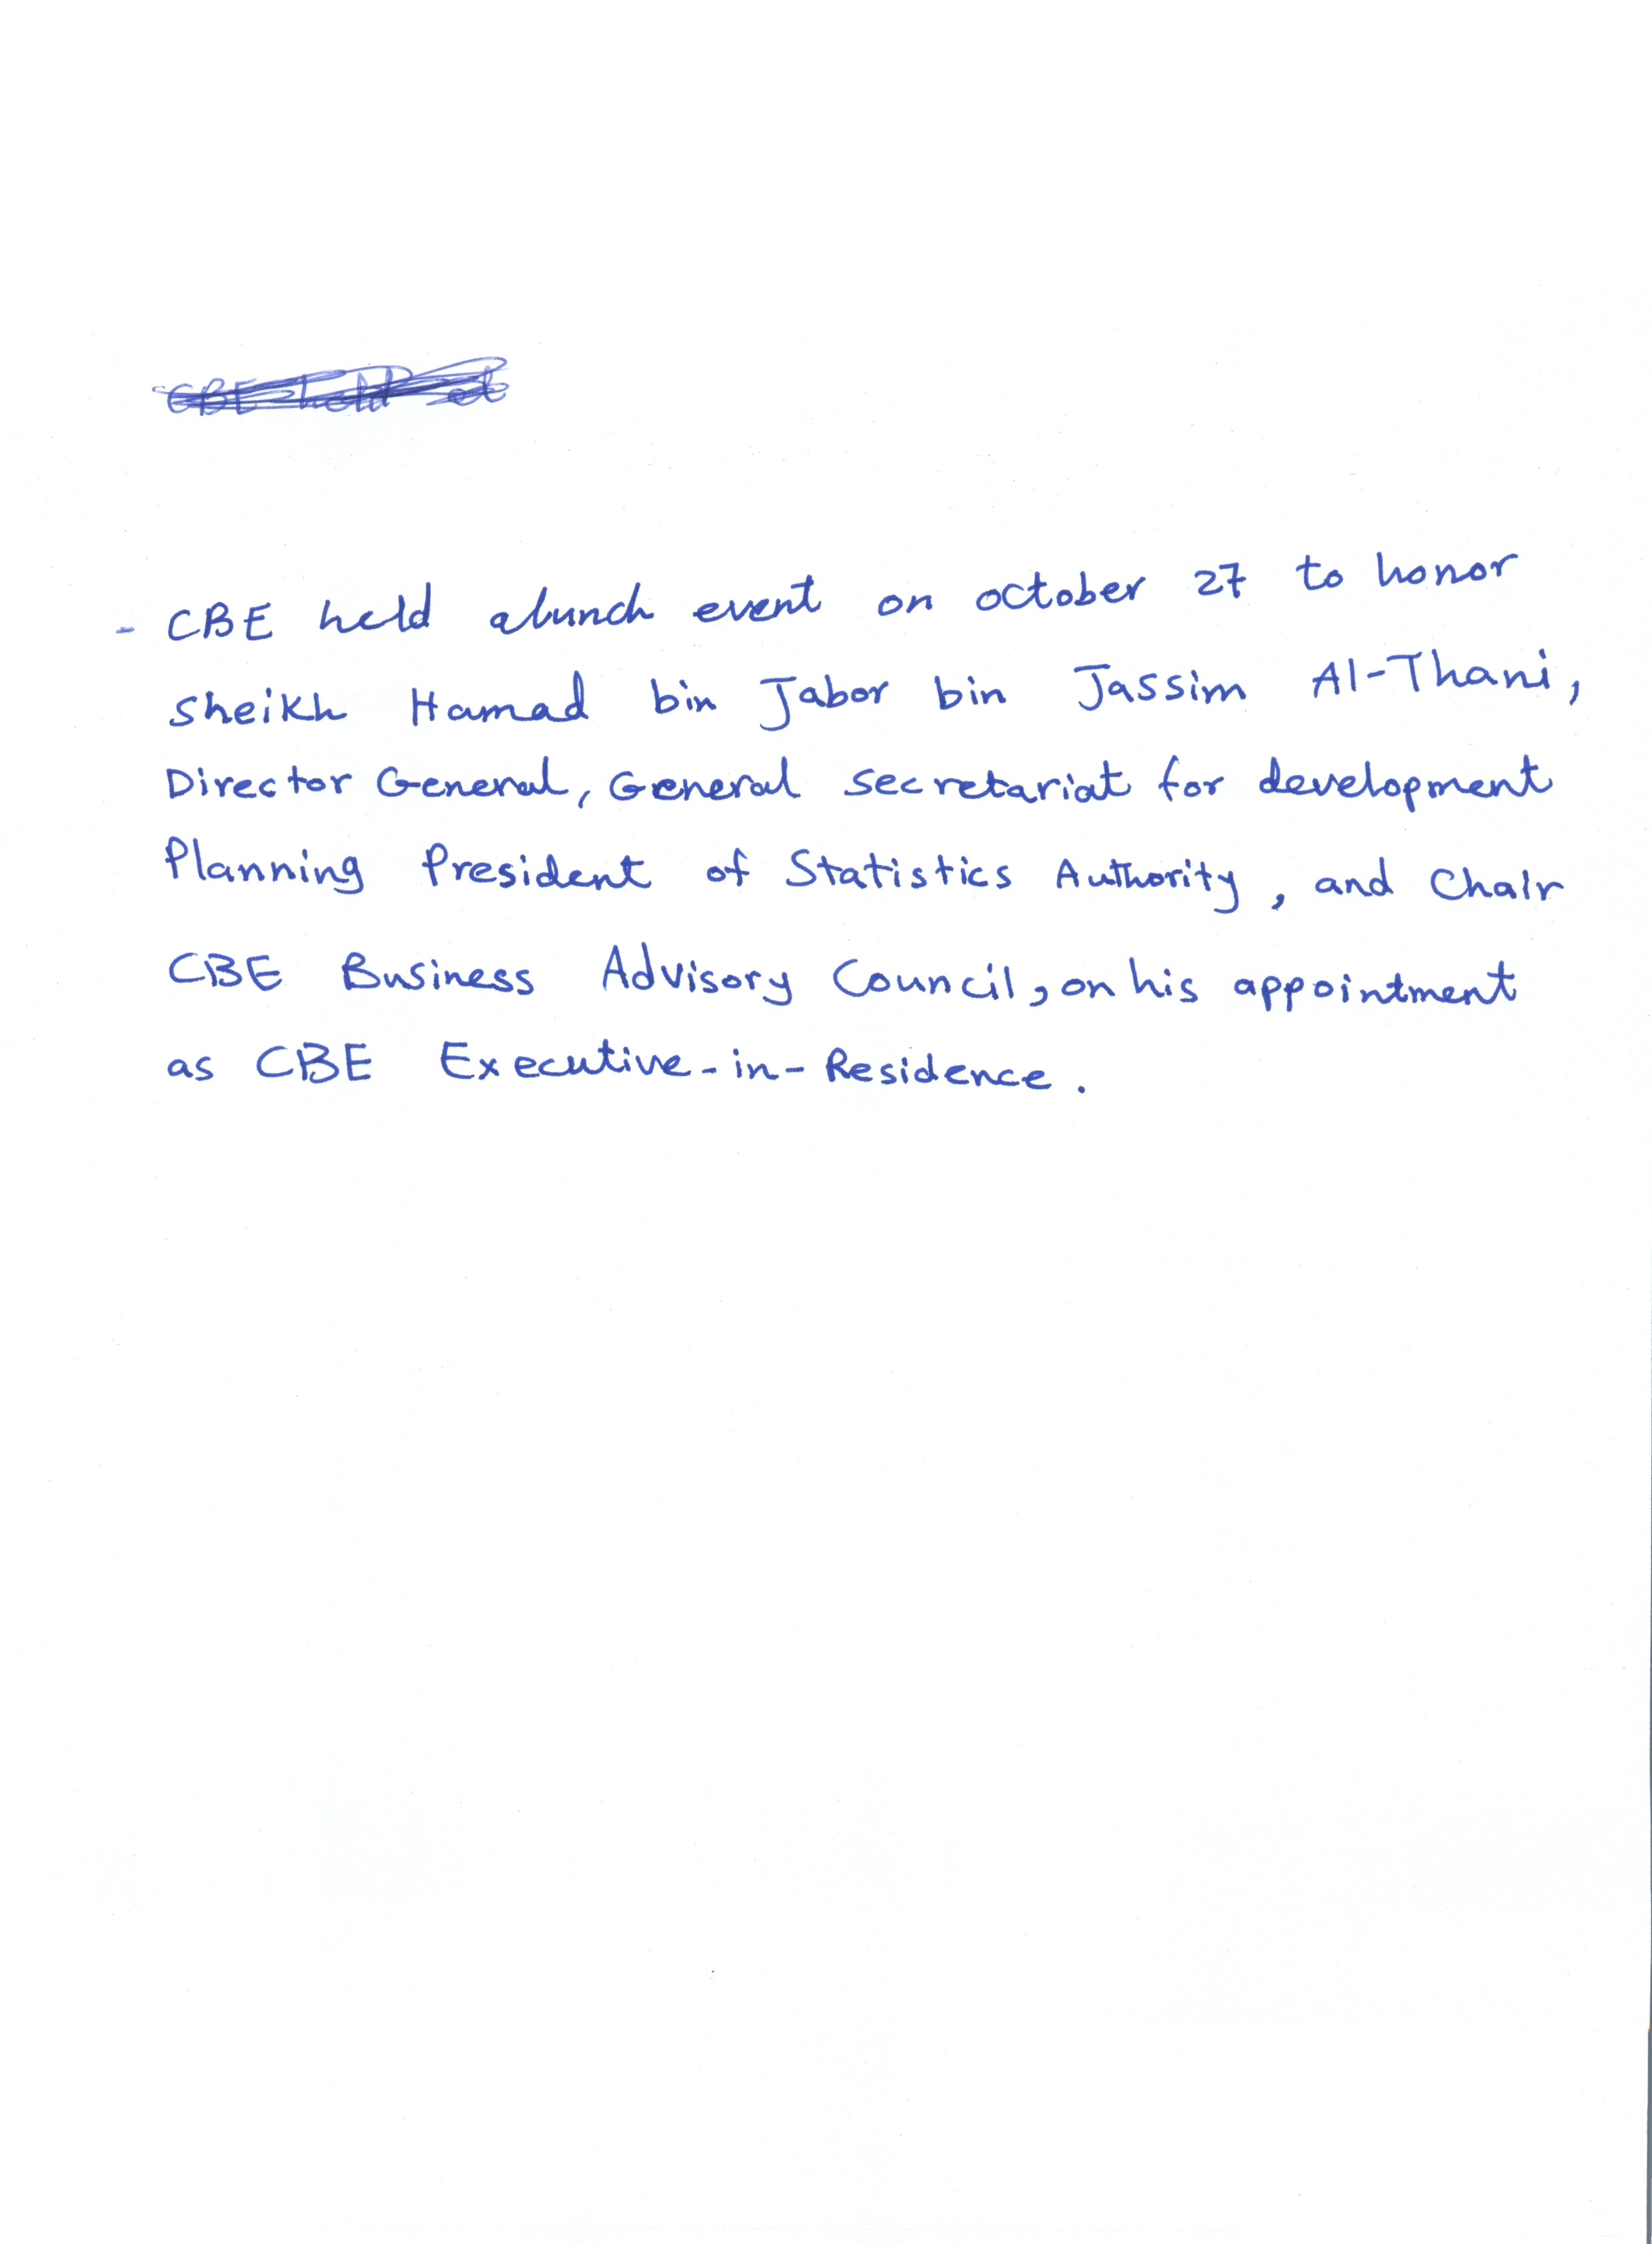 - CBE held alunch event on october 27 to honor
sheikh Hamad bin Jabor bin Jassim Al-Thani,
Director General, General secretariat for development
Planning President of Statistics Authority, and Chair
CBE Business Advisory Council, on his appointment
as CBE Executive-in-Residence.